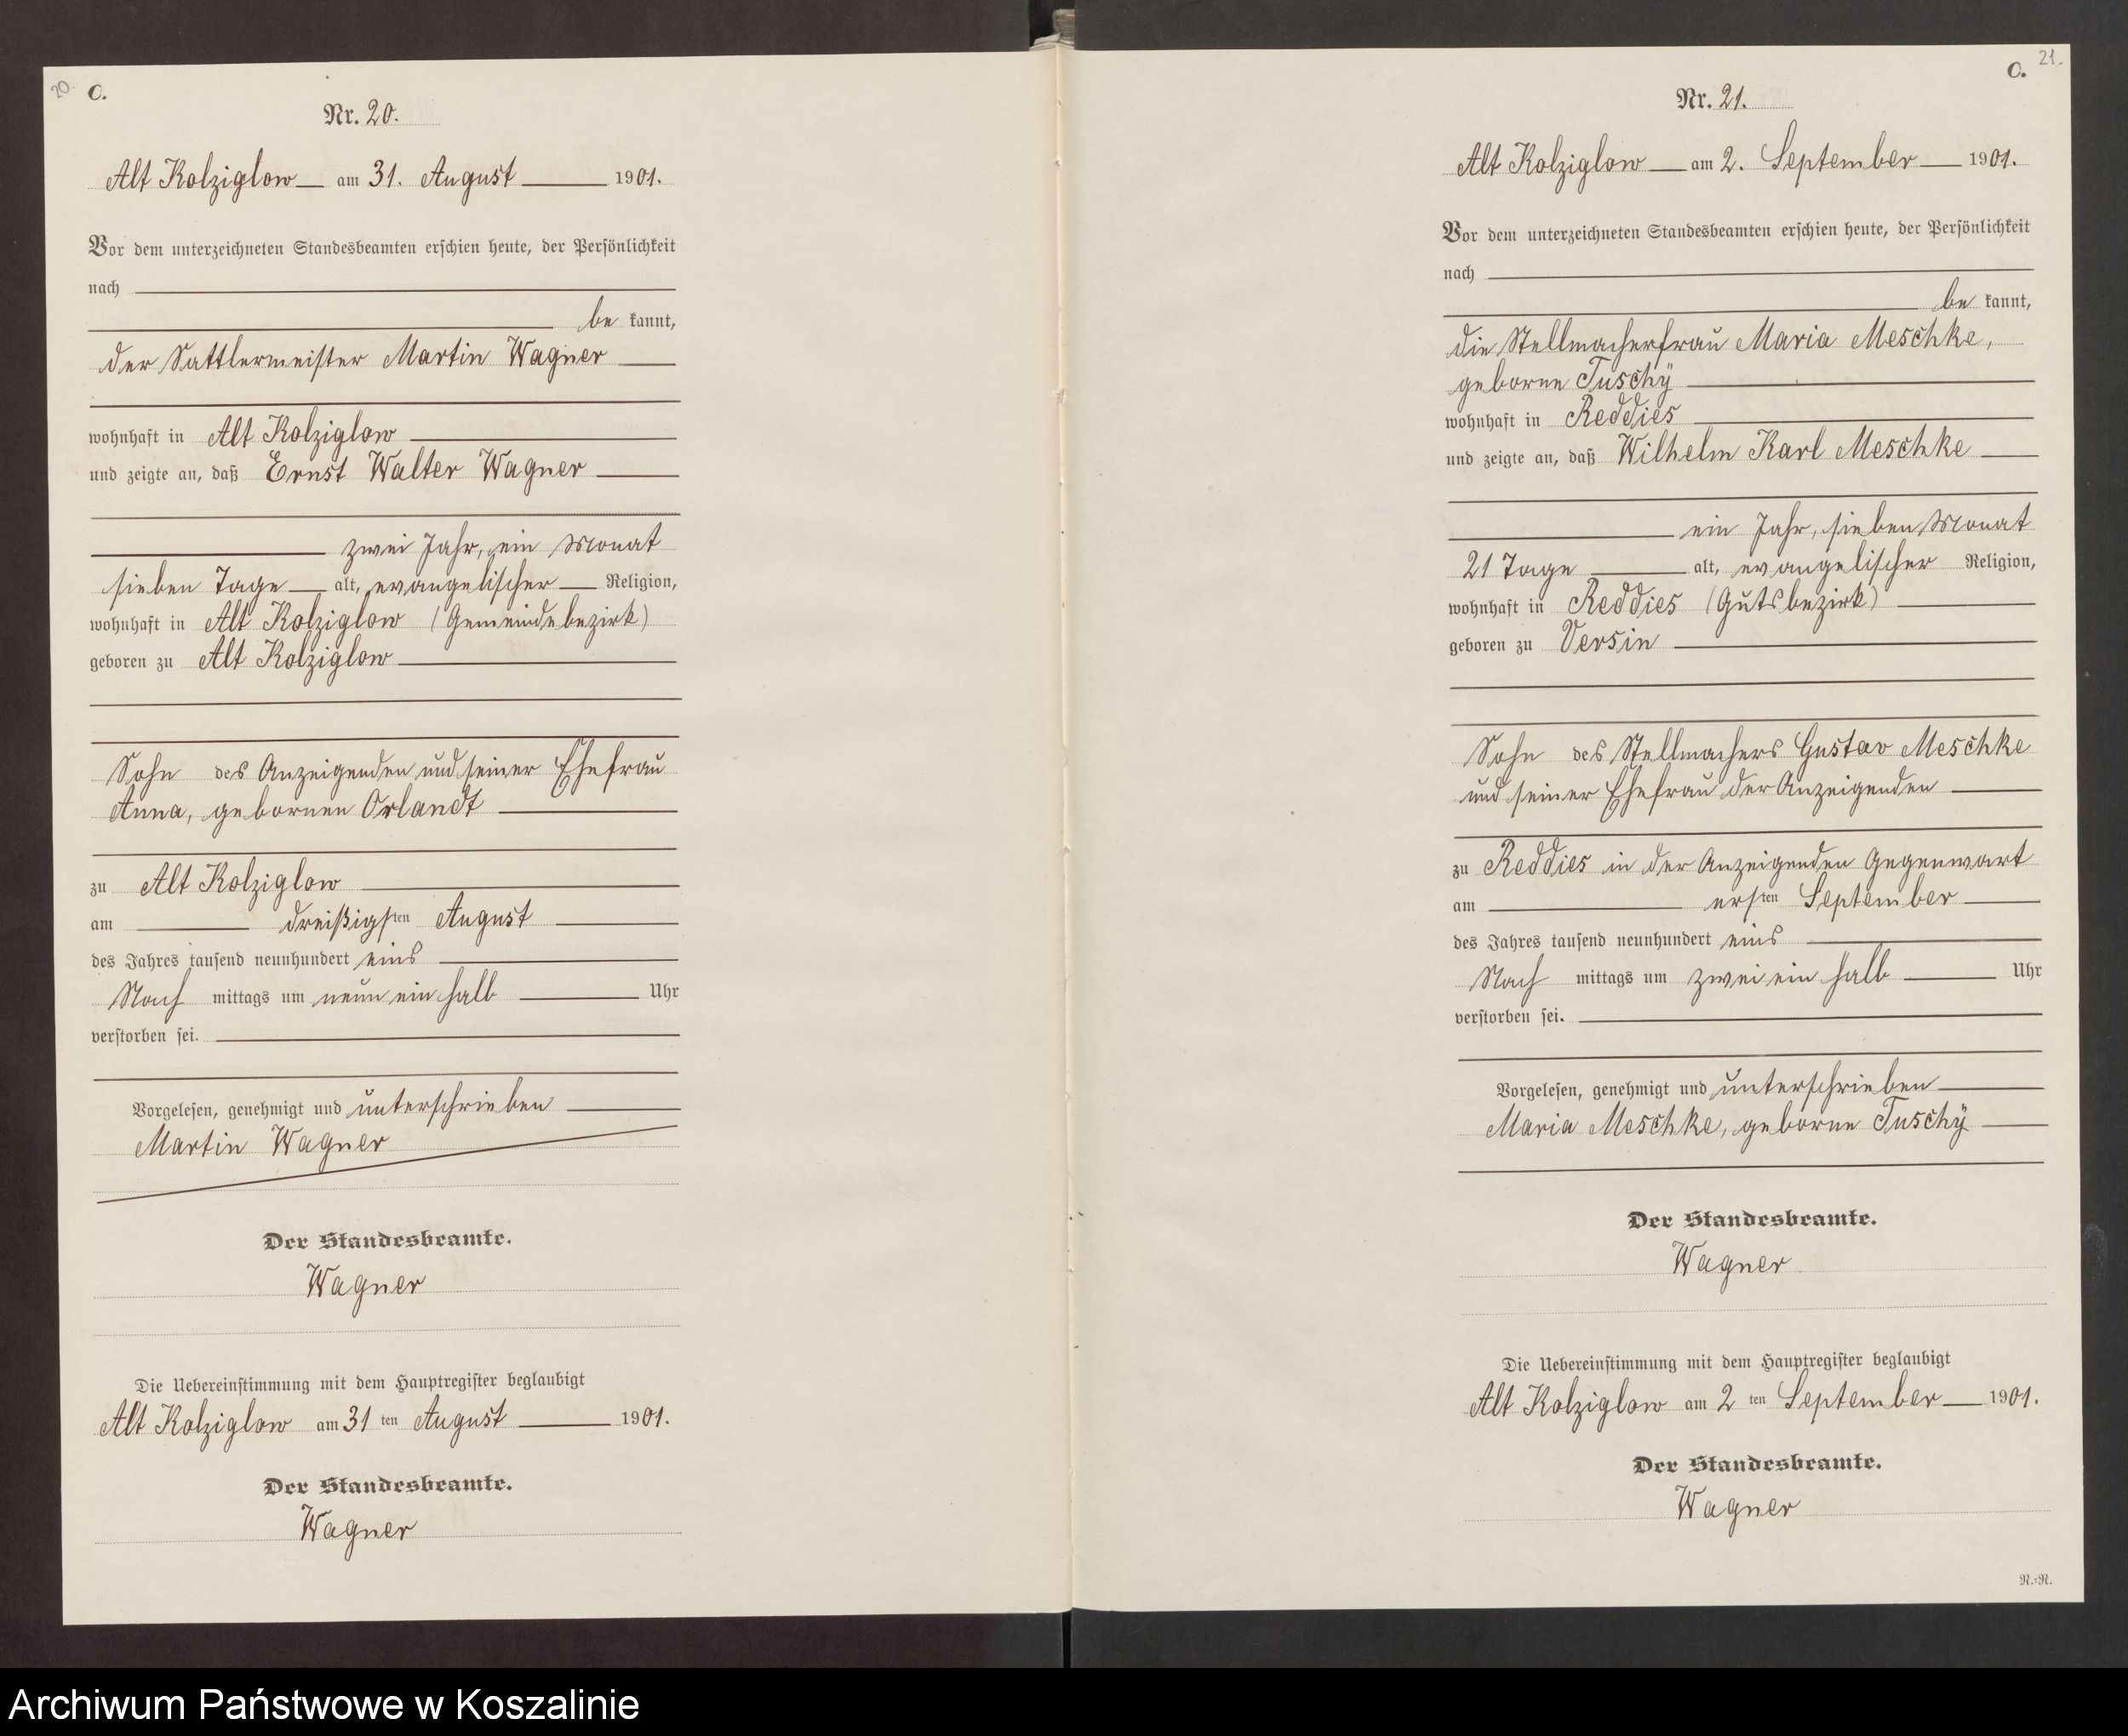 20.
C.
Nr. 20.
Alt Kolziglow am 31. August 1901.
Vor dem unterzeichneten Standesbeamten erschien heute, der Persönlichkeit
nach
be kannt,
der Sattlermeister Martin Wagner
wohnhaft in Alt Kolziglow
und zeigte an, daß Ernst Walter Wagner
zwei Jahr, ein Monat
sieben Tage alt, evangelischer Religion,
wohnhaft in Alt Kolziglow (Gemeindebezirk)
geboren zu Alt Kolziglow
Sohn des Anzeigenden und seiner Ehefrau
Anna, gebornen Orlandt
zu Alt Kolziglow
am dreißigsten August
des Jahres tausend neunhundert eins
Nach mittags um neun ein halb Uhr
verstorben sei.
Vorgelesen, genehmigt und unterschrieben
Martin Wagner
Der Standesbeamte.
Wagner
Die Uebereinstimmung mit dem Hauptregister beglaubigt
Alt Kolziglow am 31 ten August 1901.
Der Standesbeamte.
Wagner
21.
C.
Nr. 21.
Alt Kolziglow am 2. September 1901.
Vor dem unterzeichneten Standesbeamten erschien heute, der Persönlichkeit
nach
be kannt,
die Stellmacherfrau Maria Meschke,
geborne Tuschÿ
wohnhaft in Reddies
und zeigte an, daß Wilhelm Karl Meschke
ein Jahr, sieben Monat
21 Tage alt, evangelischer Religion,
wohnhaft in Reddies (Gutsbezirk)
geboren zu Versin
Sohn des Stellmachers Gustav Meschke
und seiner Ehefrau der Anzeigenden
zu Reddies in der Anzeigenden Gegenwart
am ersten September
des Jahres tausend neunhundert eins
Nach mittags um zwei ein halb Uhr
verstorben sei.
Vorgelesen, genehmigt und unterschrieben
Maria Meschke, geborne Tuschÿ
Der Standesbeamte.
Wagner
Die Uebereinstimmung mit dem Hauptregister beglaubigt
Alt Kolziglow am 2 ten September 1901.
Der Standesbeamte.
Wagner
R.=R.
Archiwum Państwowe w Koszalinie